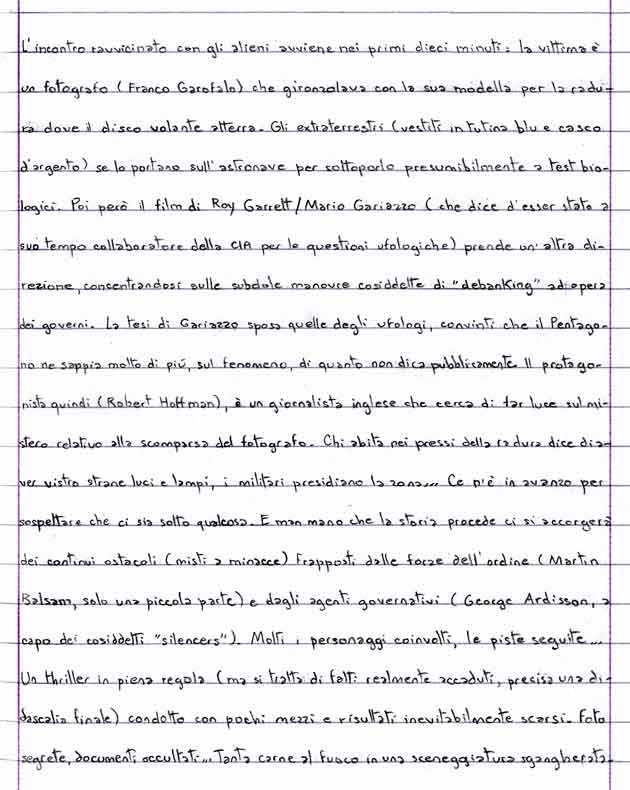 L'incontro ravvicinato con gli alieni avviene nei primi dieci minuti: la vittima è
un fotografo (Franco Garofalo) che gironzolava con la sua modella per la radu-
ra dove il disco volante atterra. Gli extraterrestri (vestiti in tutina blu e casco
d'argento) se lo portano sull'astronave per sottoporlo presumibilmente a test bio-
logici. Poi però il film di Roy Garrett/Mario Gariazzo (che dice d'esser stato a
suo tempo collaboratore della CIA per le questioni ufologiche) prende un'altra di-
rezione, concentrandosi sulle subdole manovre cosiddette di "debanking" ad opera
dei governi. La tesi di Gariazzo sposa quelle degli ufologi, convinti che il Pentago-
no ne sappia molto di più, sul fenomeno, di quanto non dica pubblicamente. Il protago-
nista quindi (Robert Hoffman), è un giornalista inglese che cerca di far luce sul mi-
stero relativo alla scomparsa del fotografo. Chi abita nei pressi della radura dice di a-
ver vistro strane luci e lampi, i militari presidiano la zona... Ce n'è in avanzo per
sospettare che ci sia sotto qualcosa. E man mano che la storia procede ci si accorgerà
dei continui ostacoli (misti a minacce) frapposti dalle forze dell'ordine (Martin
Balsam, solo una piccola parte) e dagli agenti governativi (George Ardisson, a
capo dei cosiddetti "silencers"). Molti i personaggi coinvolti, le piste seguite...
Un thriller in piena regola (ma si tratta di fatti realmente accaduti, precisa una di-
dascalia finale) condotto con pochi mezzi e risultati inevitabilmente scarsi. Foto
segrete, documenti occultati... Tanta carne al fuoco in una sceneggiatura sgangherata.